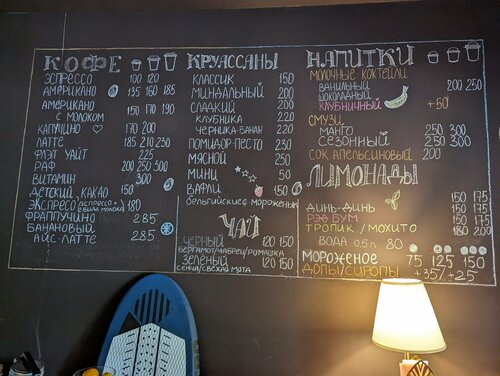 КОФЕ
ЭСПРЕССО 100 120
АМЕРИКАНО 135 160 185
АМЕРИКАНО
С МОЛОКОМ 150 170 190
КАПУЧИНО 170 200
ЛАТТЕ 185 210 230
ФЛЭТ УАЙТ 225
РАФ 200 250 300
ВИТАМИН 300
ДЕТСКИЙ КАКАО 150
ЭКСПРЕССО (ЭСПРЕССО + 180
ФРАППУЧИНО 285
БАНАНОВЫЙ
АЙС-ЛАТТЕ 285
КРУАССАНЫ
КЛАССИК 150
МИНДАЛЬНЫЙ 200
СЛАДКИЙ 200
КЛУБНИКА 220
ЧЕРНИКА-БАНАН 220
ПОМИДОР-ПЕСТО 230
МЯСНОЙ 250
МИНИ 50
ВАФЛИ 150
бельгийские с мороженым
ЧАЙ
ЧЕРНЫЙ 120 150
БЕРГАМОТ/ЧАБРЕЦ/РОМАШКА
ЗЕЛЕНЫЙ 120 150
СЕНЧА/СВЕЖАЯ МЯТА
НАПИТКИ
МОЛОЧНЫЕ КОКТЕЙЛИ
ВАНИЛЬНЫЙ 200 250
ШОКОЛАДНЫЙ
КЛУБНИЧНЫЙ +50
СМУЗИ
МАНГО 250 300
СЕЗОННЫЙ 250 300
СОК АПЕЛЬСИНОВЫЙ 200
ЛИМОНАДЫ
150 175
ДИНЬ-ДИНЬ 150 175
РЭД БУМ 150 175
ТРОПИК / МОХИТО 180 200
ВОДА 0.5 Л 80
МОРОЖЕНОЕ 75 125 150
ДОПЫ/СИРОПЫ +35/+25